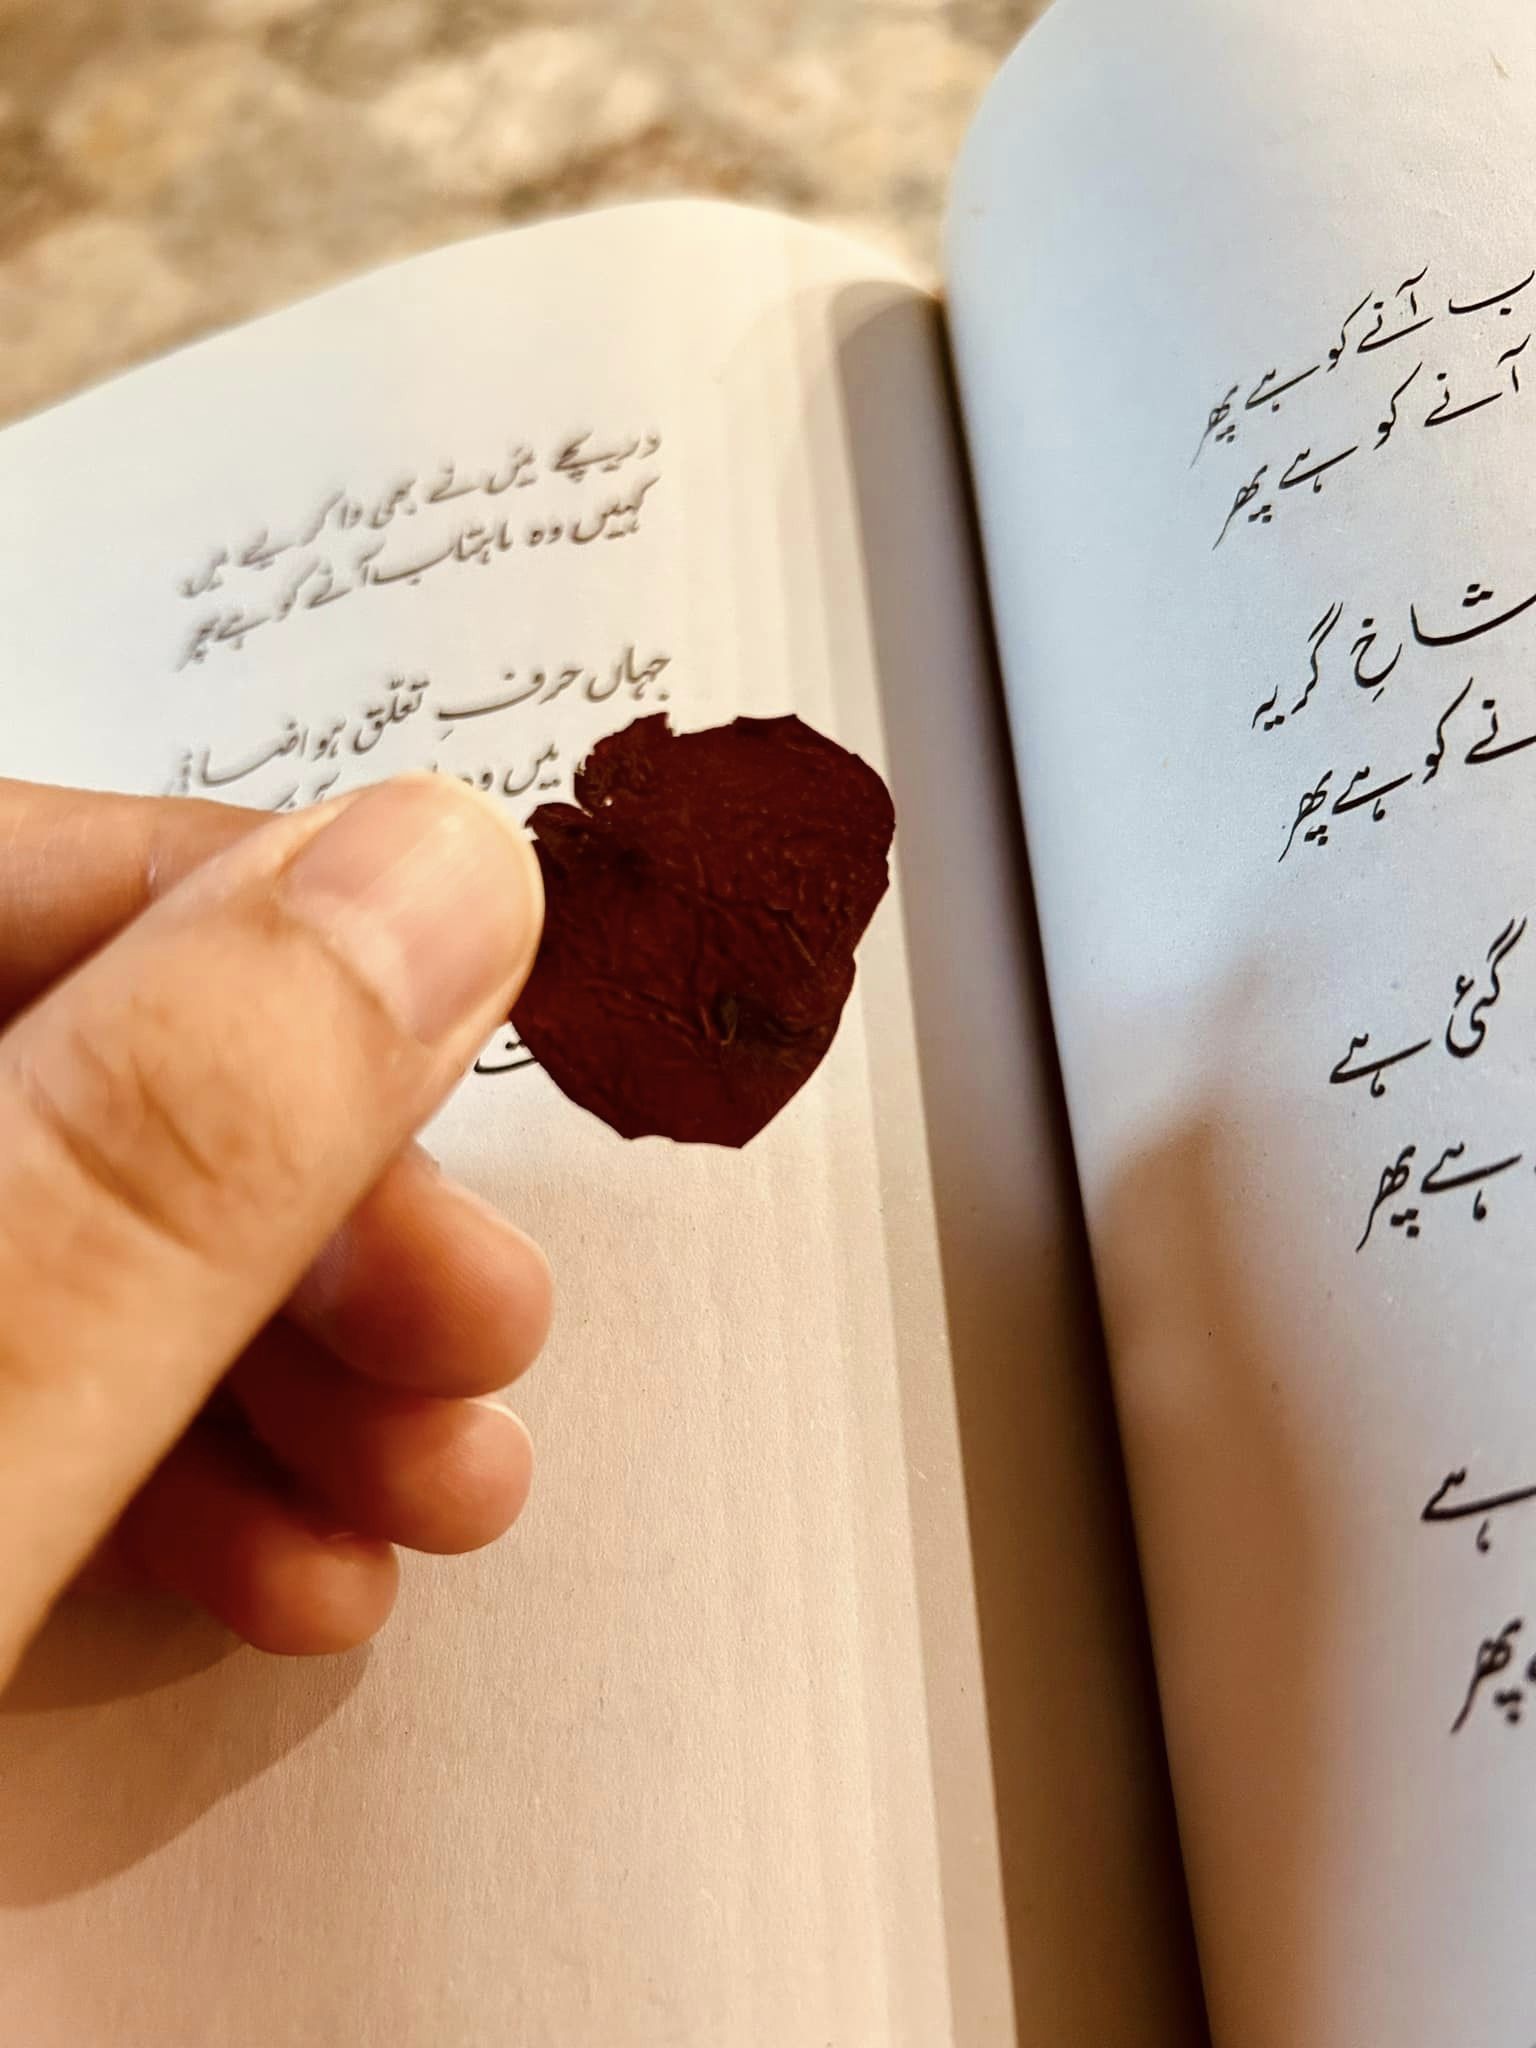 ب آنے کو ہے پھر
آنے کو ہے پھر
شاخِ گریہ
نے کو ہے پھر
گئی ہے
ہے پھر
ہے
پھر
دریچے میں نے بھی وا کر لیے ہیں
کہیں وہ ماہتاب آنے کو ہے پھر
جہاں حرفِ تعلّق ہو اضافی
میں وہ